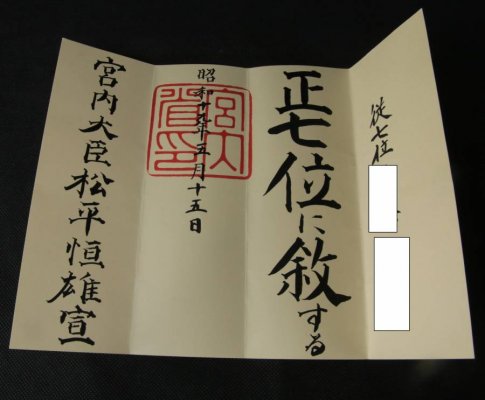 従七位
正七位に敘する
昭和十九年五月十五日
宮内省印
宮内大臣松平恒雄宣